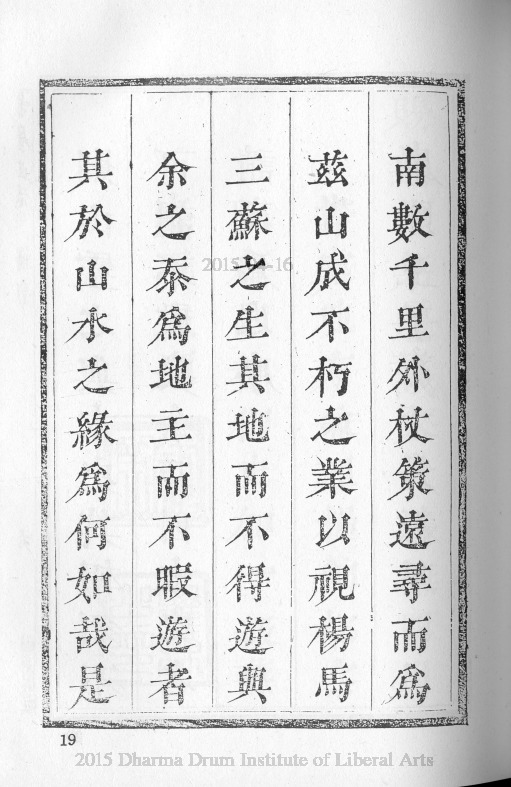 南數千里外杖策遠尋而爲
茲山成不朽之業以視楊馬
三蘇之生其地而不得遊與
余之忝爲地主而不暇遊者
其於山水之緣爲何如哉是
19
2015-04-16
2015 Dharma Drum Institute of Liberal Arts